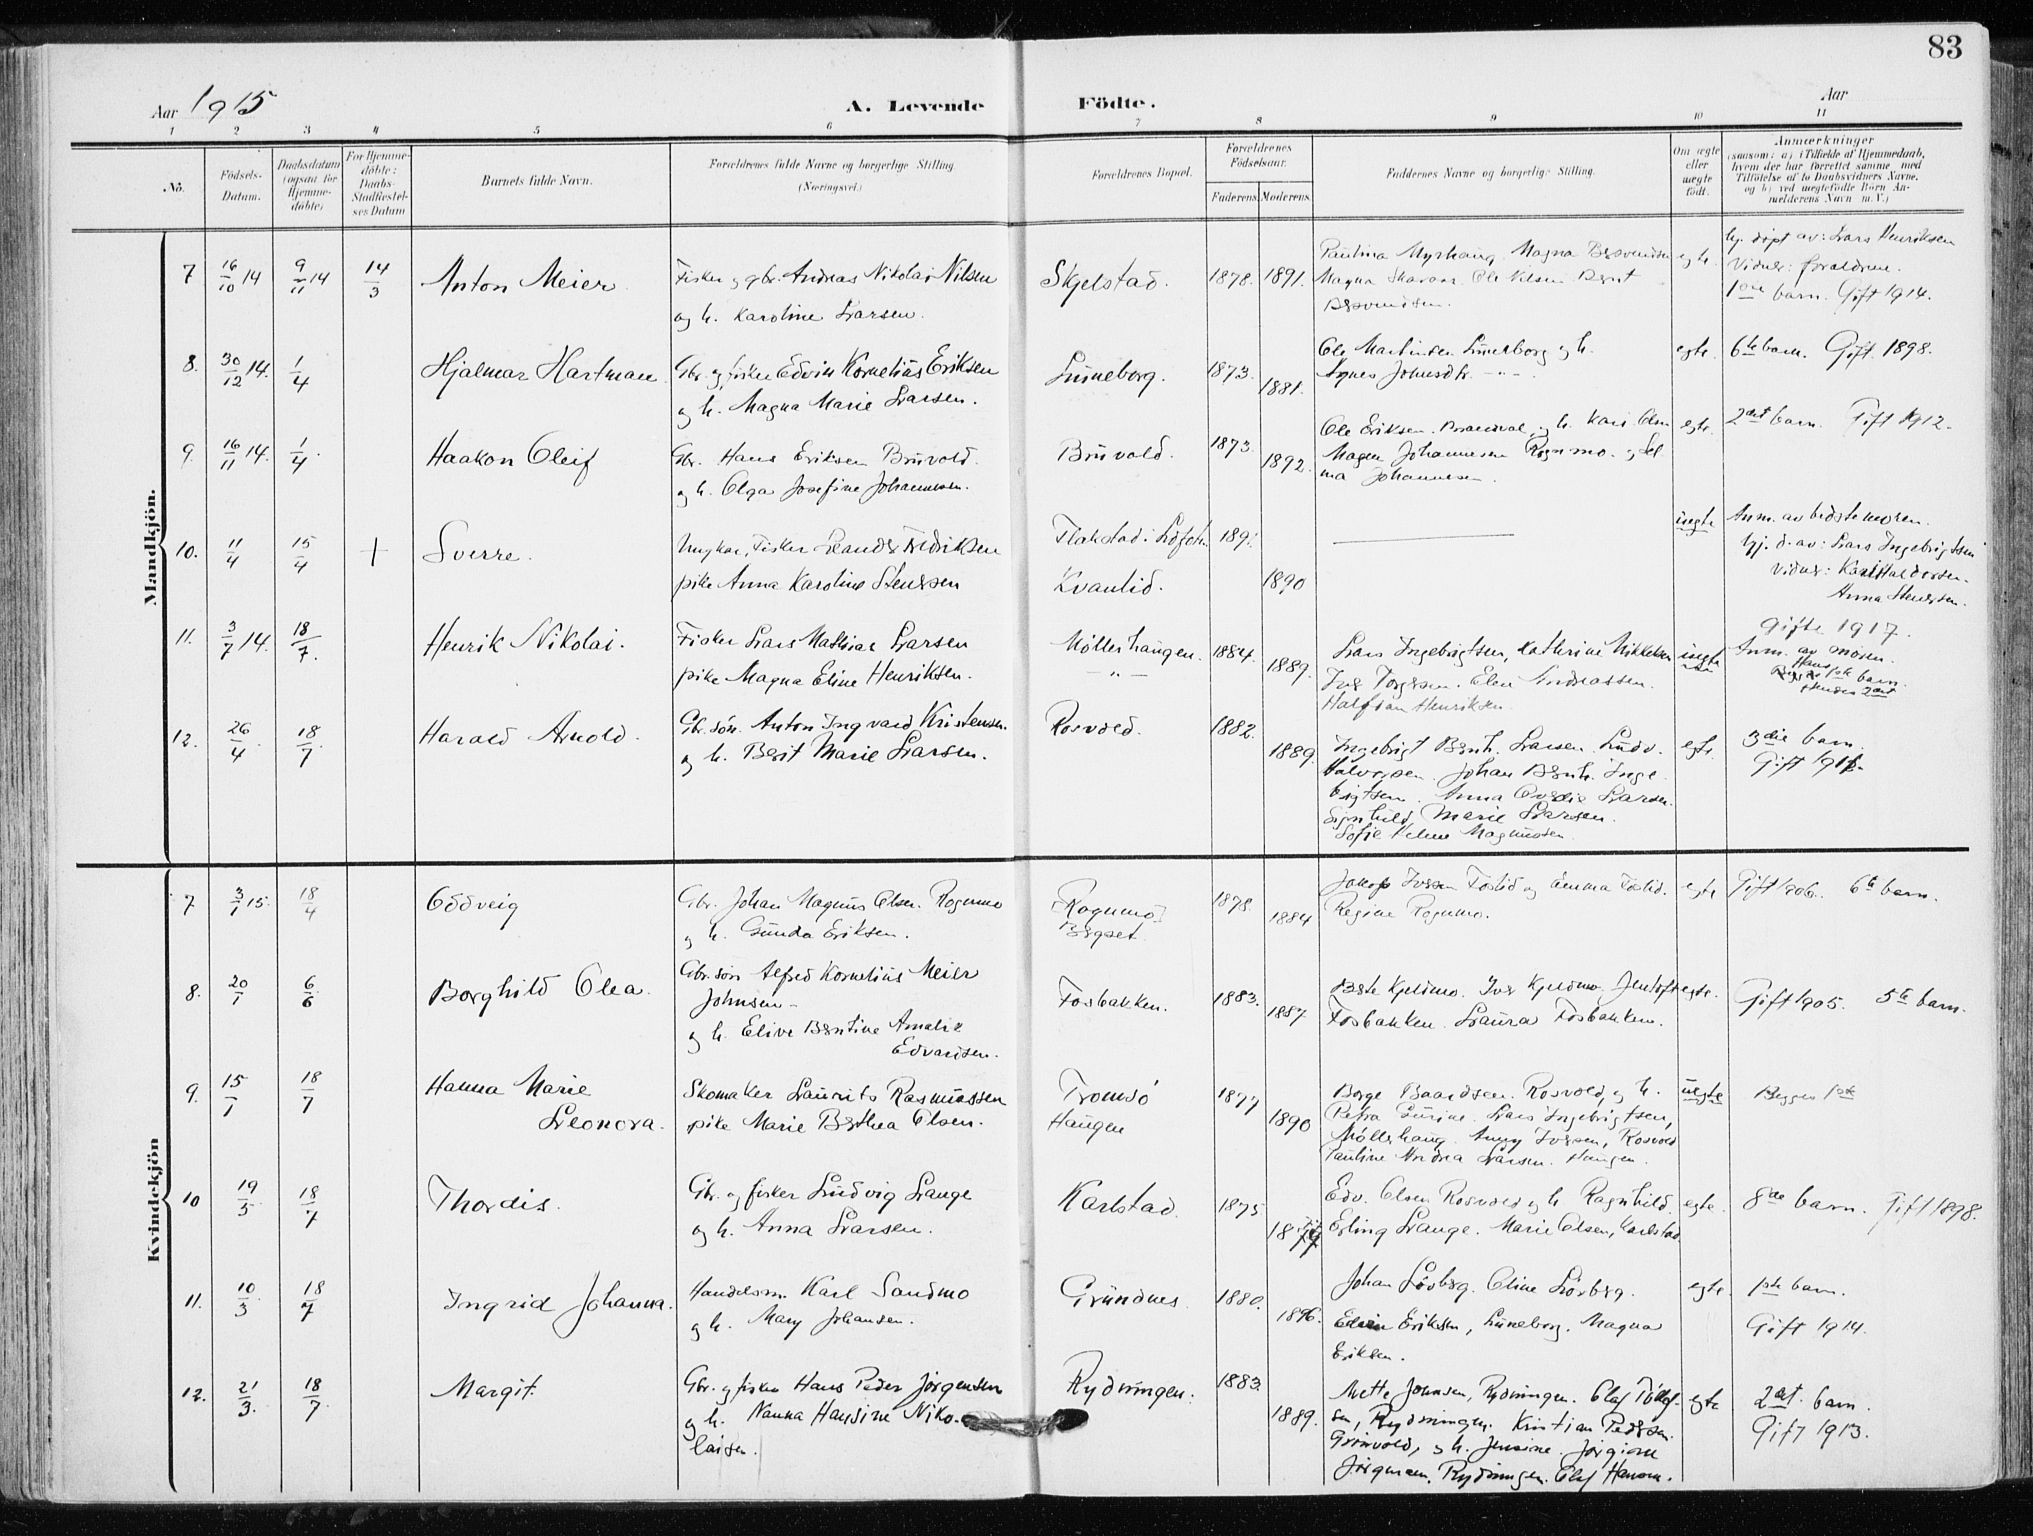 83
Aar 1915
A. Levende
Födte.
Aar
1 2 3 4 5 6 7 8 9 10 11
No.
Födsels-
Datum.
Daabsdatum
(ogsaa for
Hjemme-
döbte)
For Hjemme-
döbte:
Daabs-
Stadfæstel-
ses Datum
Barnets fulde Navn.
Forældrenes fulde Navne og borgerlige Stilling.
(Næringsvei.)
Forældrenes Bopæl.
Forældrenes
Födselsaar.
Faderens. Moderens.
Faddernes Navne og borgerlige Stilling.
Om ægte
eller
uægte
födt.
Anmærkninger
(saasom: a) i Tilfælde af Hjemmedaab,
hvem der har forrettet samme med
Tilföielse af to Daabsvidners Navne.
og b) ved uægtefödte Börn An-
melderens Navn m.V.)
Mandkjön.
7 16/10 14 9/11 14 14/3 Anton Meier.
Fisker og gbr. Andreas Nikolai Nilsen
og h. Karoline Larsen.
Skjelstad. 1878. 1891.
Paulina Myrhaug. Magna
Magna Ole Nilsen Bernt
egte.
hj. døpt av: Lars Henriksen
Vidner: forældrene.
1ste barn. Gift 1914.
8. 30/12 14. 1/4 Hjalmar Hartman.
Gbr. og fisker Edvin Kornelius Eriksen
og h. Magna Marie Larsen.
Luneborg. 1873. 1881.
Ole Martinsen Luneborg og h.
Agnes Johnsdtr. - " -
egte. 6te barn. Gift 1898.
9. 16/11 14. 1/4. Haakon Oleif
Gbr. Hans Eriksen Bruvold.
og h. Olga Josefine Johannesen.
Bruvold. 1873. 1892.
Ole Eriksen. og h. Kari Olsen
Johannesen Rognmo. og Sel
ma Johannesen.
egte. 2det barn. Gift 1912.
10. 11/4 15/4 + Sverre.
Ungkar, Fisker Leander Fredriksen
pike Anna Karoline Stensen
Flakstad i Lofoten 189
Kvanlid. 1890
uegte
Anm. av bedstemoren.
hj. d. av: Lars Ingebrigtsen
Vidner: Karl Haldorsen.
Anna Stensen.
11. 3/7 14. 18/7. Henrik Nikolai.
Fisker Lars Mathias Larsen
pike Magna Eline Henriksen.
Møllerhaugen. 1884. 1889.
- " -
Lars Ingebrigtsen, Kathrine Mikkelsen
Elen Andreassen.
Halfdan Henriksen.
uegte
Gifte 1917.
Anm. av moren.
Hans 1ste barn.
Hendes 2det
12. 26/4. 18/7 Harald Arnold.
Gbr. søn. Anton Ingvard Kristensen.
og h. Berit Marie Larsen.
Rosvold. 1882. 1889.
Ingebrigt Bernh. Larsen. Ludv.
Halvorsen. Johan Bernh. Inge
brigtsen. Anna Ovedie Larsen.
Signhild Marie Larsen.
Sofie Helene Magnussen.
egte. 3die barn.
Gift
Kvindekjön
7 3/1 15. 18/4 Oddveig
Gbr. Johan Magnus Olsen. Rognmo
og h. Gunda Eriksen.
[Rognmo]
Bergset. 1878. 1884
Jakob Iversen Foslid og Emma Foslid.
Regine Rognmo.
egte Gift 1906. 6te barn.
8. 20/1 6/6 Borghild Olea.
Gbr. søn Alfred Kornelius Meier
Johnsen -
og h. Elive Berntine Amalie
Edvardsen.
Fosbakken. 1883. 1887
Beste Kjeldmo. Iver Kjeldmo. Jentoft
Fosbakken. Laura Fosbakken.
egte. Gift 1905. 5te barn.
9. 15/1 18/7 Hanna Marie
Leonora.
Skomaker Laurits Rasmussen
pike Marie Berthea Olsen.
Tromsø 1877
Haugen 1890
Borge Baardsen. Rosvold, og h.
Petra Lars Ingebrigtsen,
Møllerhaug. Anny Iversen, Rosvold
Pauline Andrea Larsen. Haugen.
uegte Begges 1ste
10 19/5. 18/7 Thordis.
Gbr. og fisker Ludvig Lange
og h. Anna Larsen.
Karlstad. 1875.
Edv. Olsen Rosvold og h. Ragnhild.
Erling Lange. Marie Olsen, Karlstad
egte. 8de barn. Gift 1898.
11. 10/3. 18/7 Ingrid Johanna.
Handelsm. Karl Sandmo
og h. Mary Johansen.
Grundnes. 1880. 1896.
Johan Løvberg. Oline Løvberg.
Edvin Eriksen, Luneborg. Magna
Eriksen.
egte. 1ste barn.
Gift 1914.
12. 21/3. 18/7. Margit.
Gbr. og fisker Hans Peder Jørgensen
og h. Nanna Hansine Niko-
laisen.
Rydningen. 1883. 1889.
Mette Johnsen, Rydningen. Olaf Tollef-
sen, Rydningen. Kristian Pedersen.
Grønvold, og h. Jensine. Jørgine
Jørgensen. Rydningen. Olaf Hansen.
egte 2det. barn.
Gift 1913.